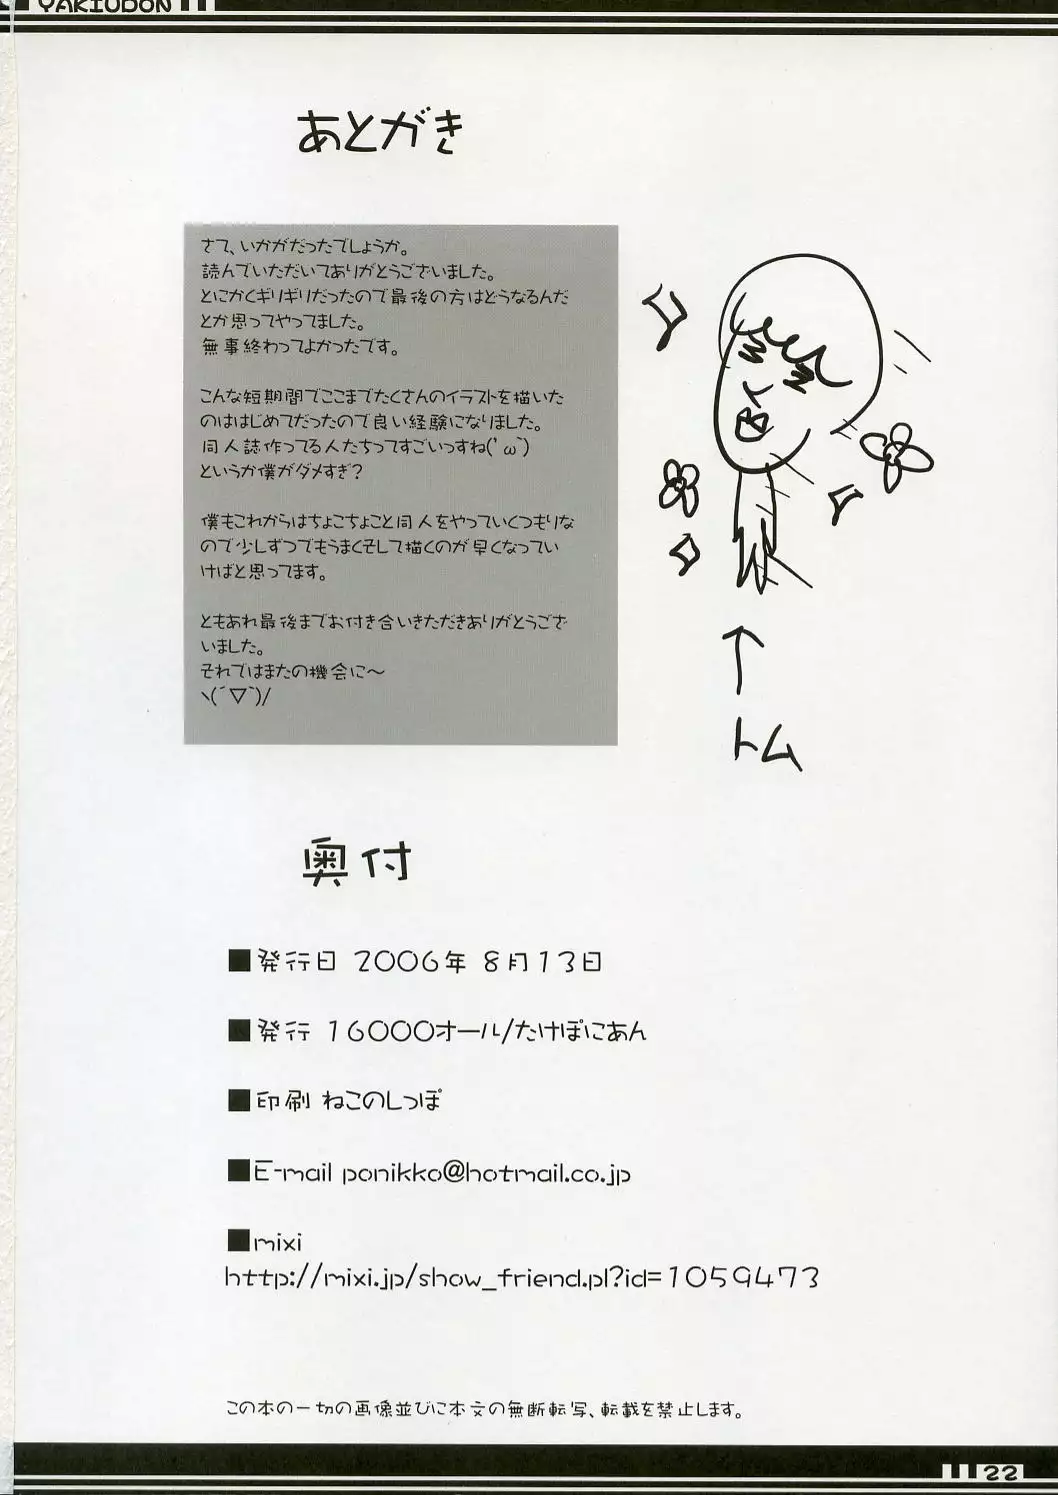 YAKIUDON
あとがき
さて、いかがだったでしょうか。
読んでいただいてありがとうございました。
とにかくギリギリだったので最後の方はどうなるんだ
とか思ってやってました。
無事終わってよかったです。
こんな短期間でここまでたくさんのイラストを描いた
のははじめてだったので良い経験になりました。
同人誌作ってる人たちってすごいっすね(´ω`)
というか僕がダメすぎ?
僕もこれからはちょこちょこと同人をやっていくつもりな
ので少しずつでもうまくそして描くのが早くなってい
けばと思ってます。
ともあれ最後までお付き合いきただきありがとうござ
いました。
それではまたの機会に~
ヽ(´▽`)/
↑
トム
奥付
■発行日 2006年 8月13日
■発行 16000オール/たけぽにあん
■印刷 ねこのしっぽ
■E-mail ponikko@hotmail.co.jp
■mixi
http://mixi.jp/show_friend.pl?id=1059473
この本の一切の画像並びに本文の無断転写、転載を禁止します。
22